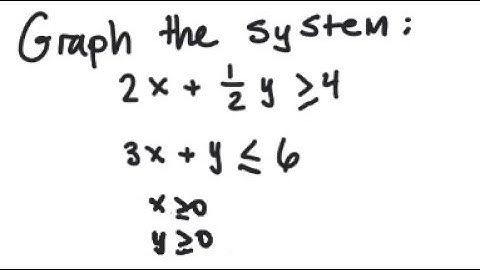 Graph the system:
2x + 1/2 y ≥ 4
3x + y ≤ 6
x ≥ 0
y ≥ 0